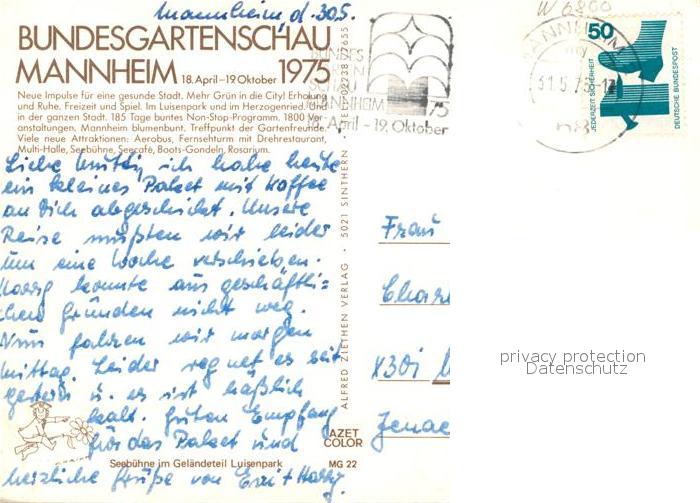 Mannheim, d. 30.5.
BUNDESGARTENSCHAU
MANNHEIM 18. April - 19. Oktober 1975
Neue Impulse für eine gesunde Stadt. Mehr Grün in die City! Erholung
und Ruhe. Freizeit und Spiel. Im Luisenpark und im Herzogenried. Und
in der ganzen Stadt. 185 Tage buntes Non-Stop-Programm. 1800 Ver-
anstaltungen. Mannheim blumenbunt. Treffpunkt der Gartenfreunde.
Viele neue Attraktionen: Aerobus, Fernsehturm mit Drehrestaurant,
Multi-Halle, Seebühne, Seecafé, Boots-Gondeln, Rosarium.
Liebe Mutti, ich habe heute
ein kleines Paket mit Kaffee
an Dich abgeschickt. Unsere
Reise mußten wir leider
um eine Woche verschieben.
Harry konnte aus geschäftli=
chen Gründen nicht weg.
Nun fahren wir morgen
mittag. Leider regnet es seit
gestern u. es ist häßlich
kalt. Guten Empfang
für das Paket und
herzliche Grüße von Harry.
Seebühne im Geländeteil Luisenpark
MG 22
AZET
COLOR
ALFRED ZIETHEN VERLAG · 5021 SINTHERN
BUNDES
GARTEN
SCHAU
MANNHEIM 75
18. April - 19. Oktober
W 6800
MANNHEIM
31.5.75
68
50
JEDERZEIT SICHERHEIT
DEUTSCHE BUNDESPOST
Frau
X30i
Jenae
privacy protection
Datenschutz